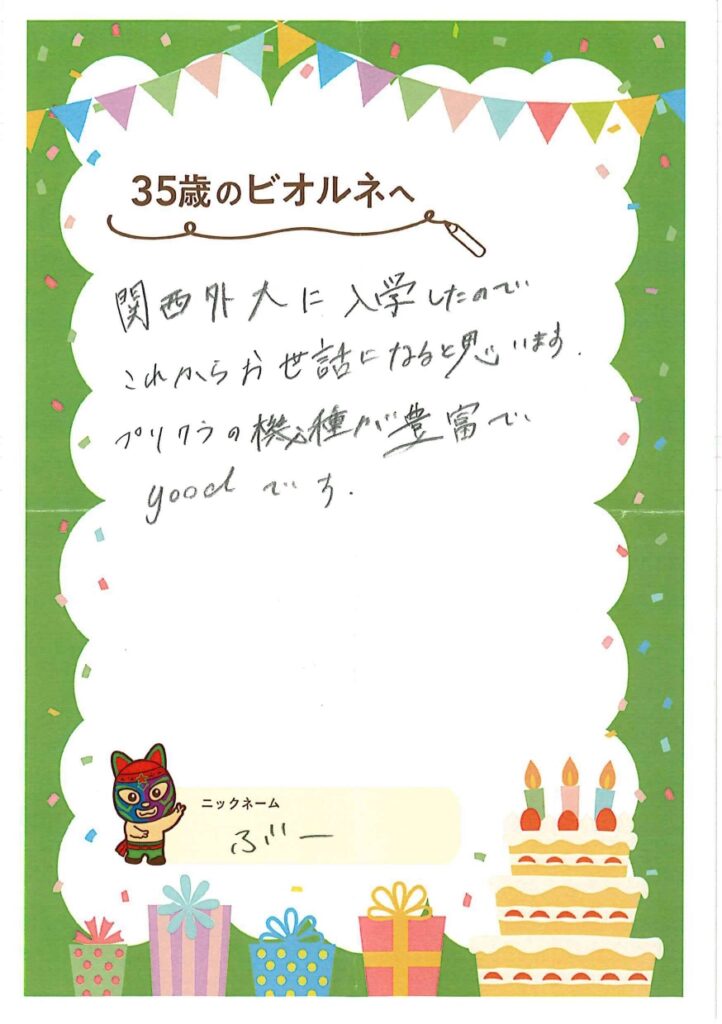 35歳のビオルネへ
関西外大に入学したので
これからお世話になると思います.
プリクラの機種が豊富で
goodです.
ニックネーム
ぶー